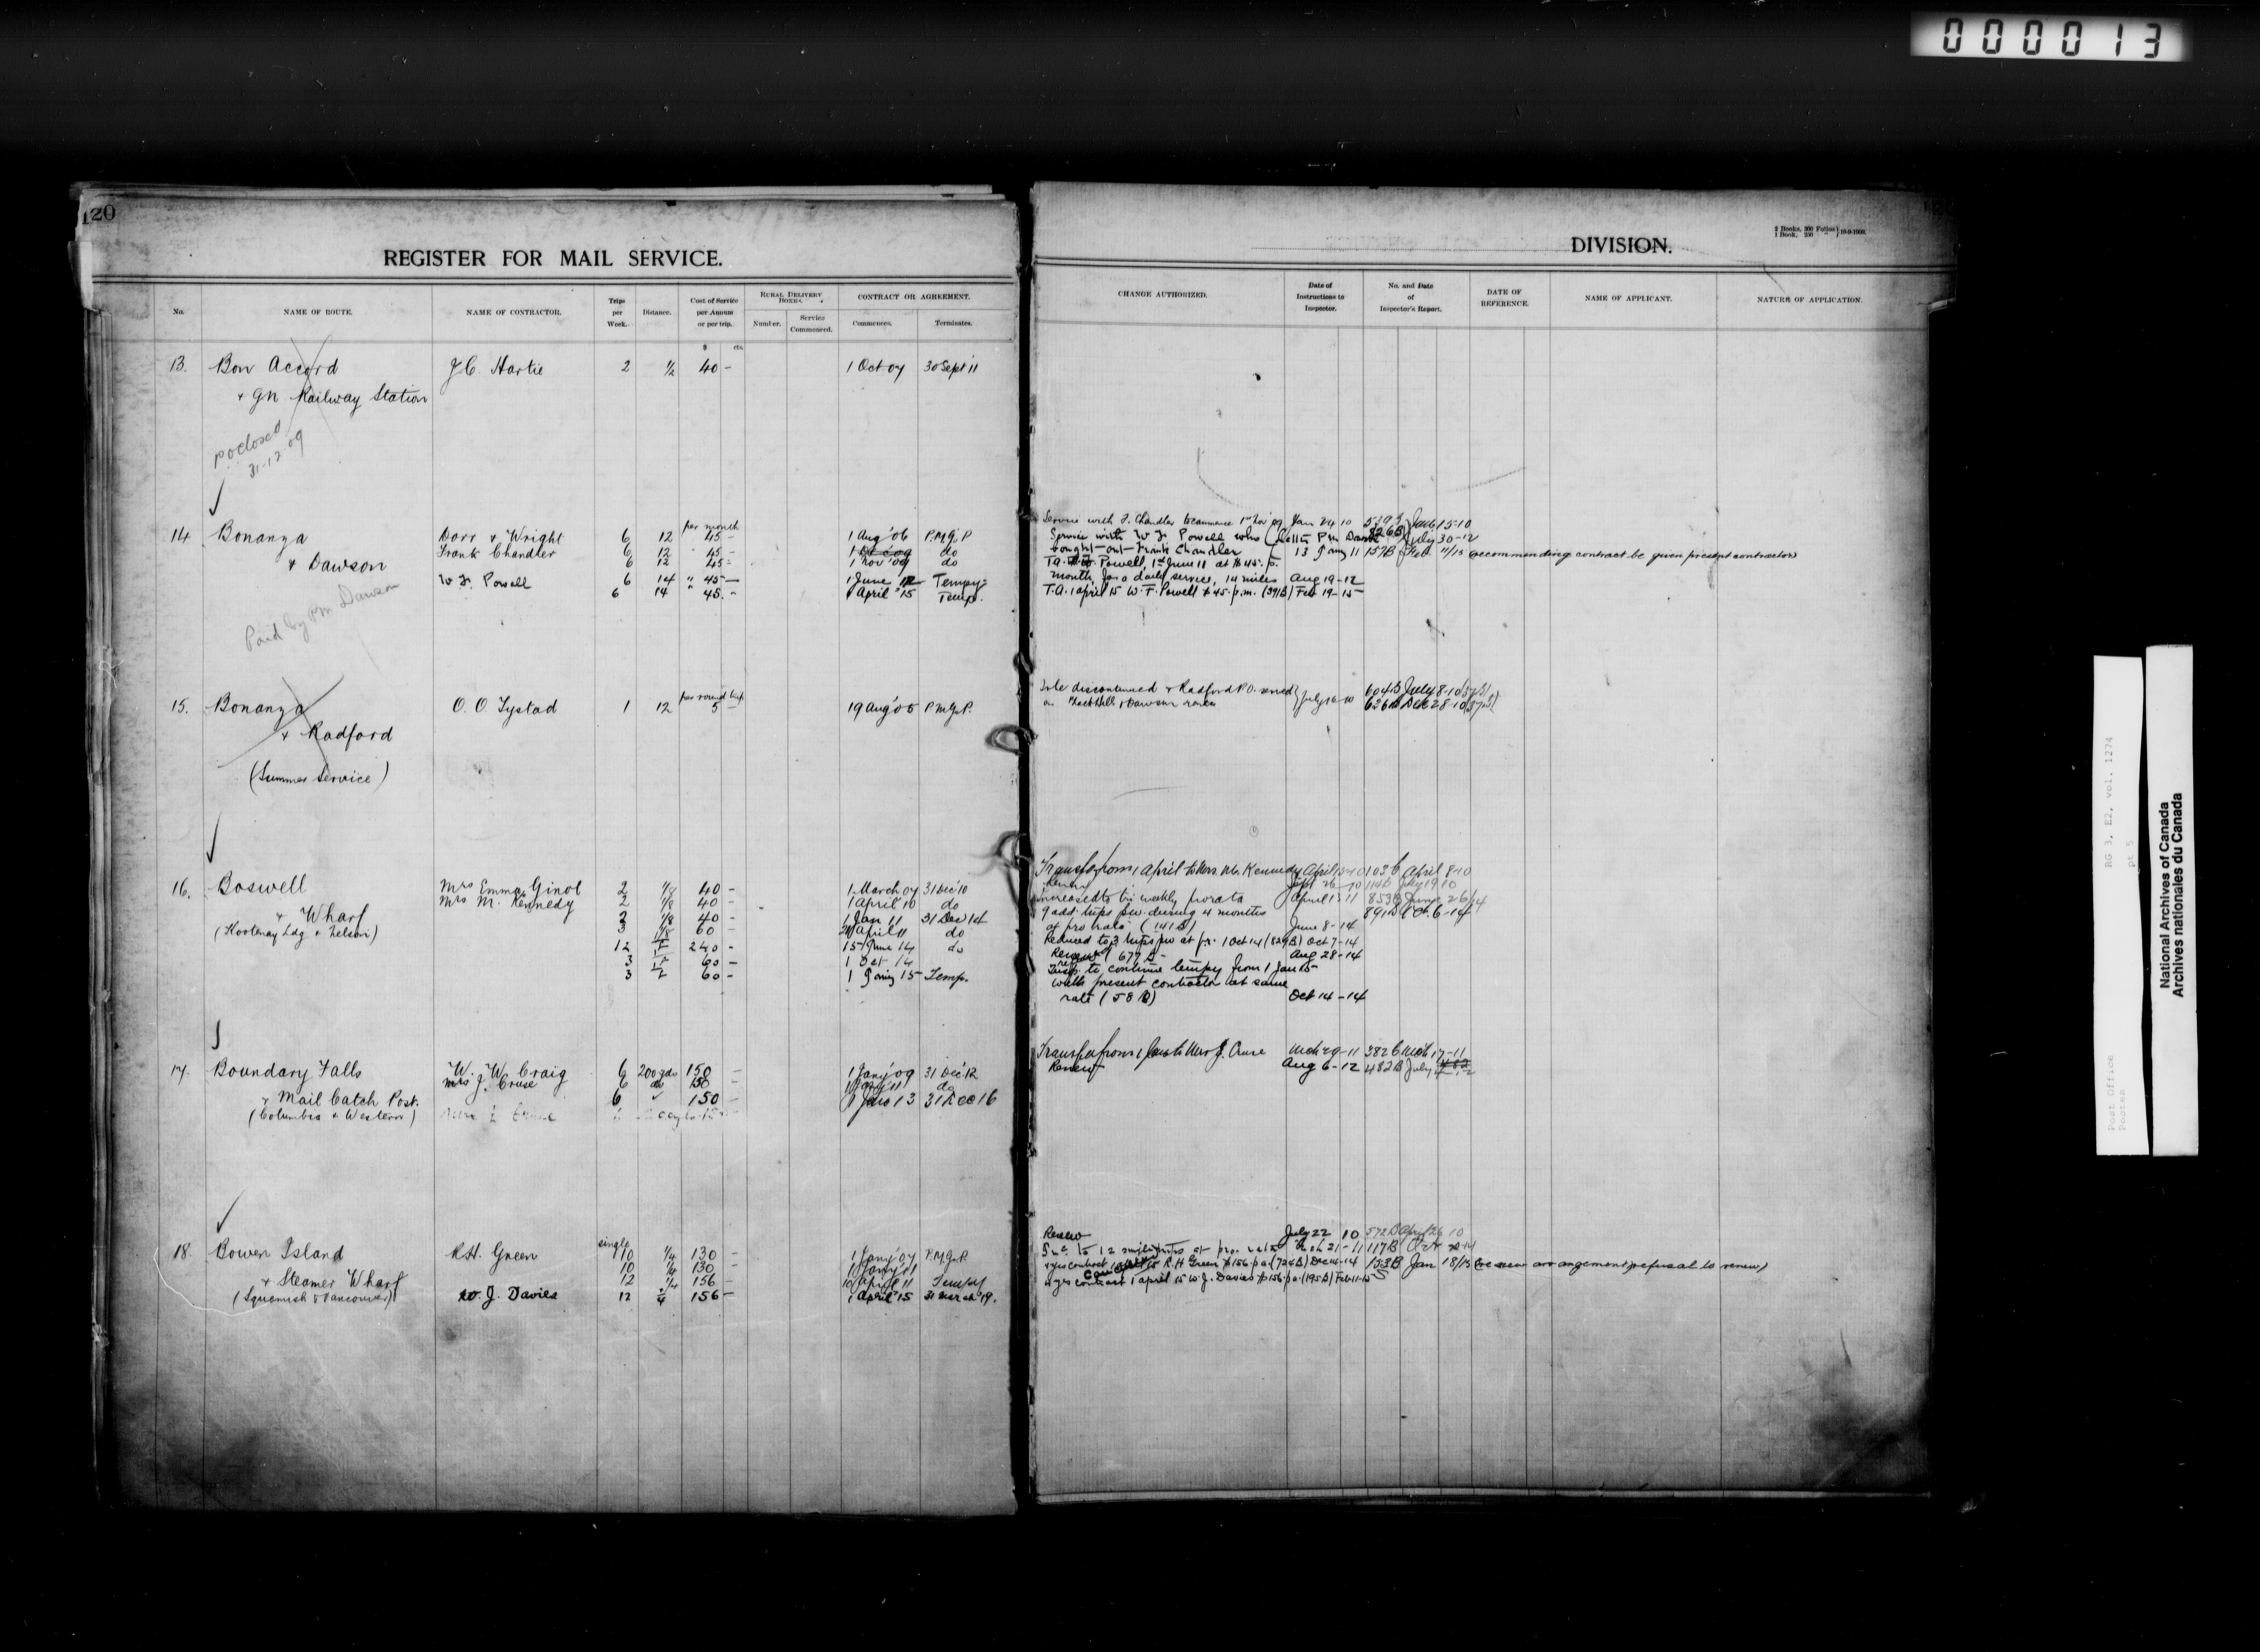 000013
120
REGISTER FOR MAIL SERVICE.
No.
NAME OF ROUTE.
NAME OF CONTRACTOR.
Trips per Week.
Distance.
Cost of Service per Annum or per trip.
RURAL DELIVERY BOXES.
Number.
Service Commenced.
CONTRACT OR AGREEMENT.
Commences.
Terminates.
$ cts.
13. Bon Accord J.C. Hartie 2 1/2 40 - 1 Oct 07 30 Sept 11
+ GN Railway Station
P O closed
31-12-09
per month
14 Bonanza Dorr + Wright 6 12 45 - 1 Aug '06 P.M.G.P
Frank Chandler 6 12 45 - do
+ Dawson 6 12 45 - 1 Nov '09 do
W. F. Powell 6 14 " 45 - 1 June 12 Tempy
6 14 " 45. - 1 April '15 Temp.
Paid by P.M. Dawson
per round trip
15. Bonanza O. O. Tystad 1 12 5 - 19 Aug '05 P.M.G.P.
+ Radford
(Summer Service)
16. Boswell Mrs Emma Ginol 2 1/8 40 - 1 March 07 31 Dec '10
Mrs M. Kennedy 2 1/8 40 - 1 April 10 do
+ Wharf 2 1/8 40 - 1 Jan 11 31 Dec 14
(Kootenay Ldg + Nelson) 3 1/8 60 - April 11 do
12 240 - 15 June 14 do
3 60 - 1 Oct 14
3 60 - 1 Jany 15 Temp.
17. Boundary Falls W. W. Craig 6 200 yds 150 - 1 Jany '09 31 Dec '12
Mrs J. Cruse 6 do 150 - 1 Jany '11 do
+ Mail Catch Post. 6 150 - 1 Jan 13 31 Dec 16
(Columbia + Western)
single
18. Bowen Island R.H. Green 10 1/4 130 - 1 Jany '07 P.M.G.P.
10 1/4 130 - 1 Jany '11
+ Steamer Wharf 12 1/4 156 - 10 April 11 Tempy
(Squamish + Vancouver) W. J. Davies 12 1/4 156 - 1 April '15 31 March '19.
DIVISION.
2 Books, 300 Folios
1 Book, 250 " } 10-9-1909.
CHANGE AUTHORIZED.
Date of Instructions to Inspector.
No. and Date of Inspector's Report.
DATE OF REFERENCE.
NAME OF APPLICANT.
NATURE OF APPLICATION.
Service with F. Chandler to commence 1st Nov 09 Jan 24 10 Jan 15-10
Service with W. F. Powell who (Letter P.M. Dawson 826B July 30-12
bought-out-Frank Chandler 13 Jany 11 157B Feb 11/15 recommending contract be given present contractor
T.A. Powell, 1st June 11 at $45. p.
month, for a daily service, 14 miles Aug 19-12
T.A. 1 April 15 W. F. Powell $45. p.m. (391B) Feb 19-15
discontinued + Radford P.O. served July 16-10 604B July 8-10
on + Dawson route 626B Dec 28-10
Transfer from 1 April to Mrs M. Kennedy April 103 April 8-10
Renew Sept 26-10 114B July 19 10
Increased to tri weekly pro rata April 13 11 853B June 26/14
9 add. trips p.w. during 4 months 891B Oct. 6-14
at pro rata (141B) June 8-14
Reduced to 3 trips p w at p.r. 1 Oct 14 (829B) Oct 7-14
Renew (677B- Aug 28-14
to continue tempy from 1 Jan 15-
with present contractor at same
rate (58B) Oct 14-14
Transfer from 1 Jan to Mrs J. Cruse Mch 29-11 382 Mch 17-11
Renew Aug 6-12 482B July
Renew July 22 10 572B 26 10
Inc. to 12 single trips at pro. rata Mch 21-11 117B Oct
4 yrs contract R.H Green $156 p.a. (724B) Dec 14-14 153B Jan 18/15 (re new arrangement, refusal to renew)
Cancelled
4 yrs contract 1 April 15 W. J. Davies $156. p.a. (195B) Feb 11-15
RG 3, E2, vol. 1274
pt 5
Post Office
Postes
National Archives of Canada
Archives nationales du Canada